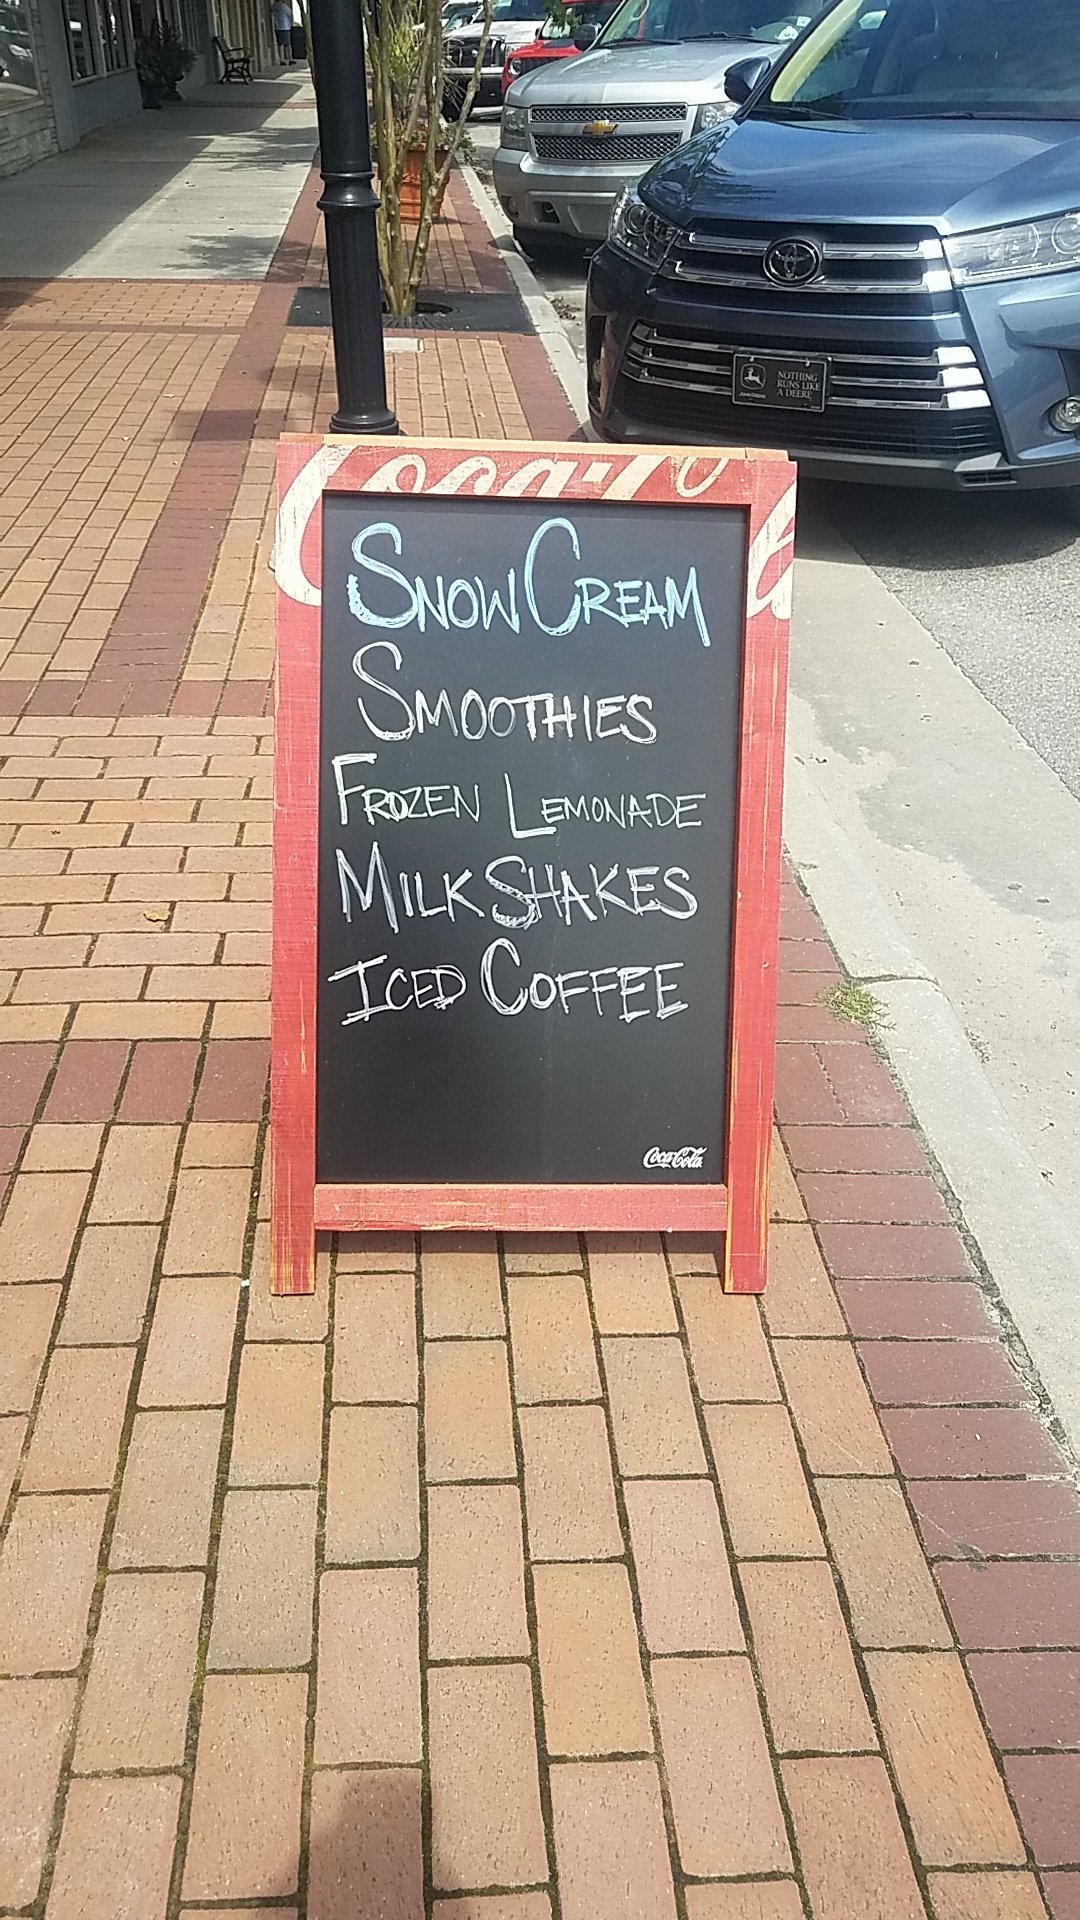 JOHN DEERE
NOTHING
RUNS LIKE
A DEERE
Coca-Cola
SNOW CREAM
SMOOTHIES
FROZEN LEMONADE
MILKSHAKES
ICED COFFEE
Coca-Cola